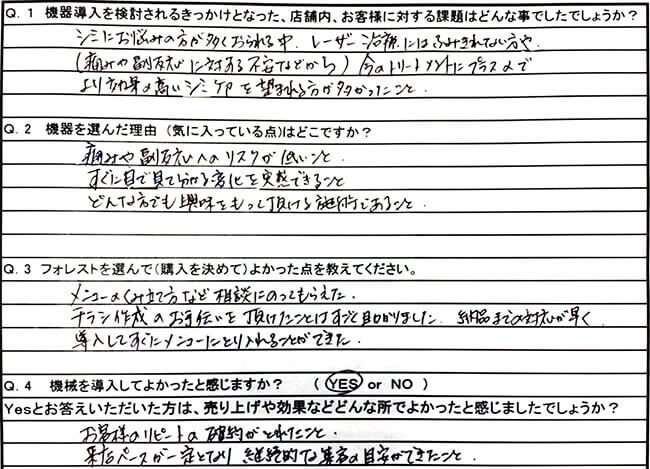 Q. 1 機器導入を検討されるきっかけとなった、店舗内、お客様に対する課題はどんな事でしたでしょうか？
シミにお悩みの方が多くおられる中、レーザー治療にはふみきれない方や、
(痛みや副反応に対する不安などから) 今のトリートメントにプラスαで
より効果の高いシミケアを望まれる方が多かったこと。
Q. 2 機器を選んだ理由 (気に入っている点)はどこですか？
痛みや副反応へのリスクが低いこと。
すぐに目で見て分かる変化を実感できること
どんな方でも興味をもって頂ける施術であること。
Q. 3 フォレストを選んで(購入を決めて)よかった点を教えてください。
メニューのくみ立て方など相談にのってもらえた。
チラシ作成のお手伝いを頂けたことはすごく助かりました。納品までの対応が早く、
導入してすぐにメニューにとり入れることができた。
Q. 4 機械を導入してよかったと感じますか？ ( YES or NO )
Yesとお答えいただいた方は、売り上げや効果などどんな所でよかったと感じましたでしょうか？
お客様のリピートの確約がとれたこと。
来店ペースが一定となり 継続的な集客の目安ができたこと。